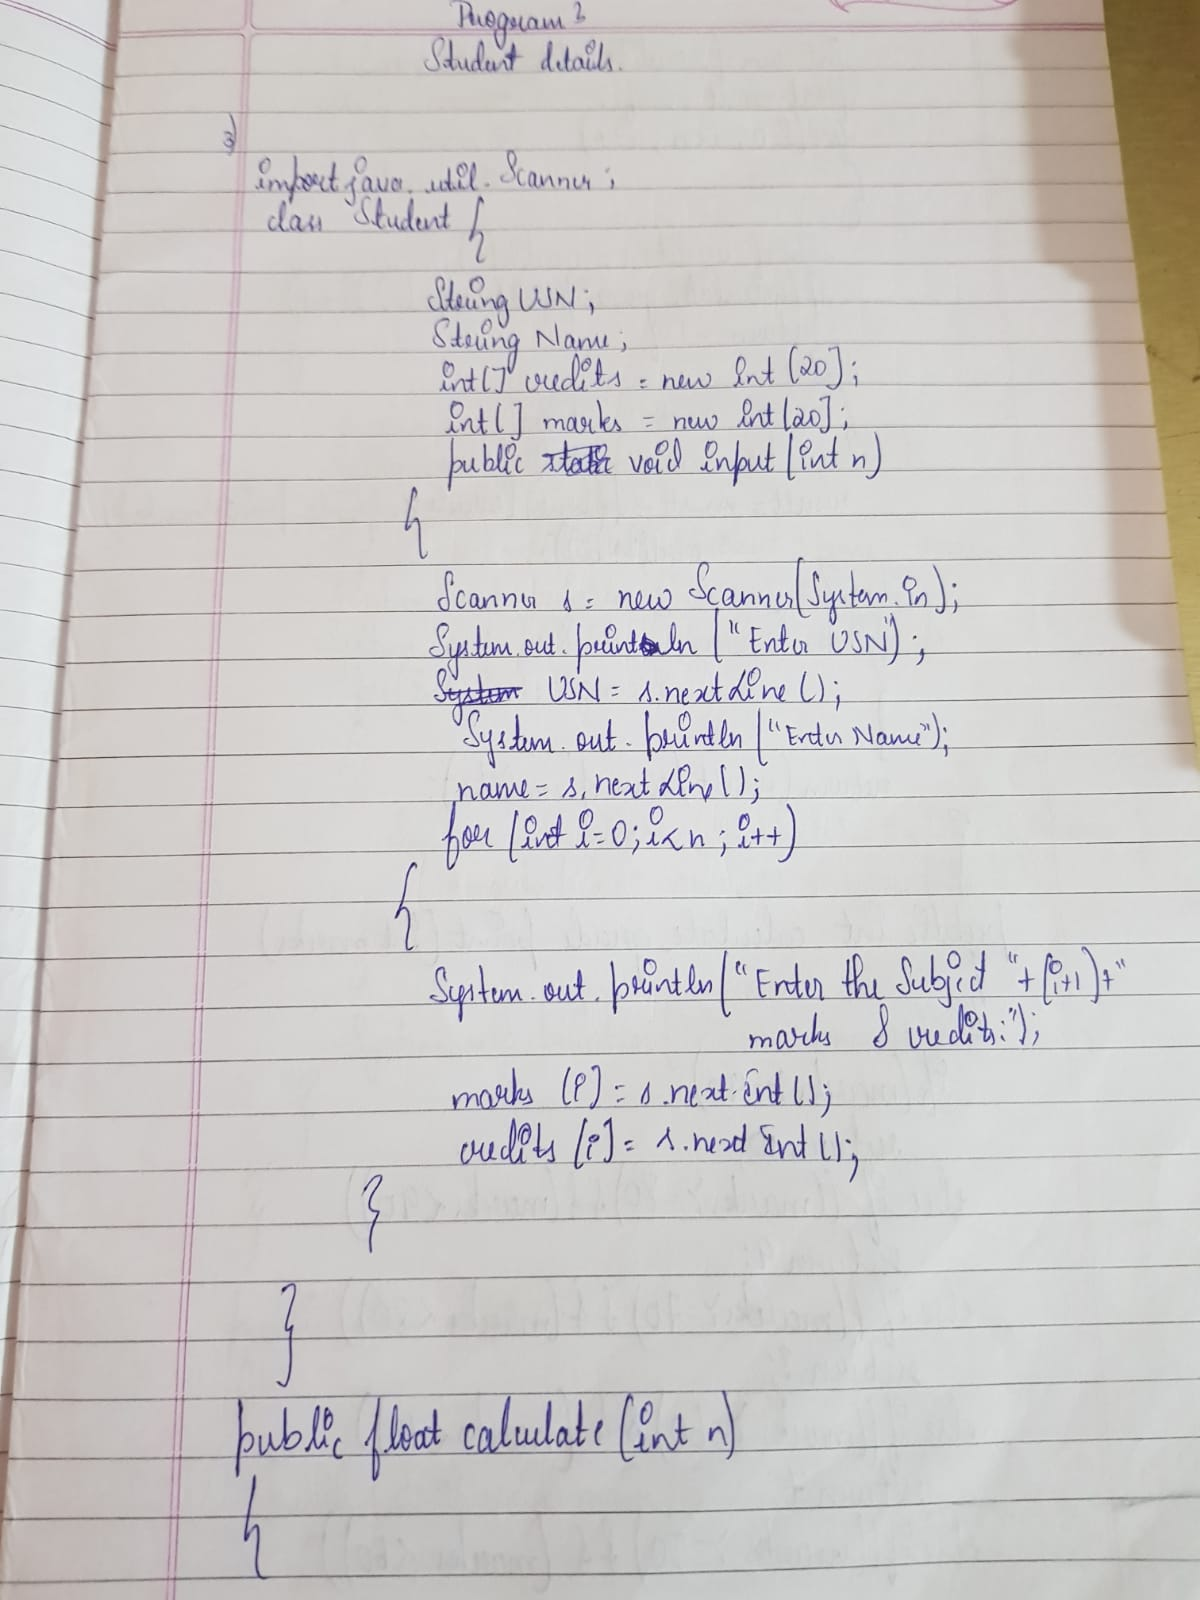 Program 3
Student details.
3)
import java.util.Scanner;
class Student {
String USN;
String Name;
int[] credits = new int[20];
int[] marks = new int[20];
public void input(int n)
{
Scanner s = new Scanner(System.in);
System.out.println("Enter USN");
USN = s.nextLine();
System.out.println("Enter Name");
name = s.nextLine();
for (int i=0; i<n; i++)
{
System.out.println("Enter the Subject "+(i+1)+"
marks & credits:");
marks [i] = s.next.Int();
credits [i] = s.next Int();
}
}
public float calculate(int n)
{